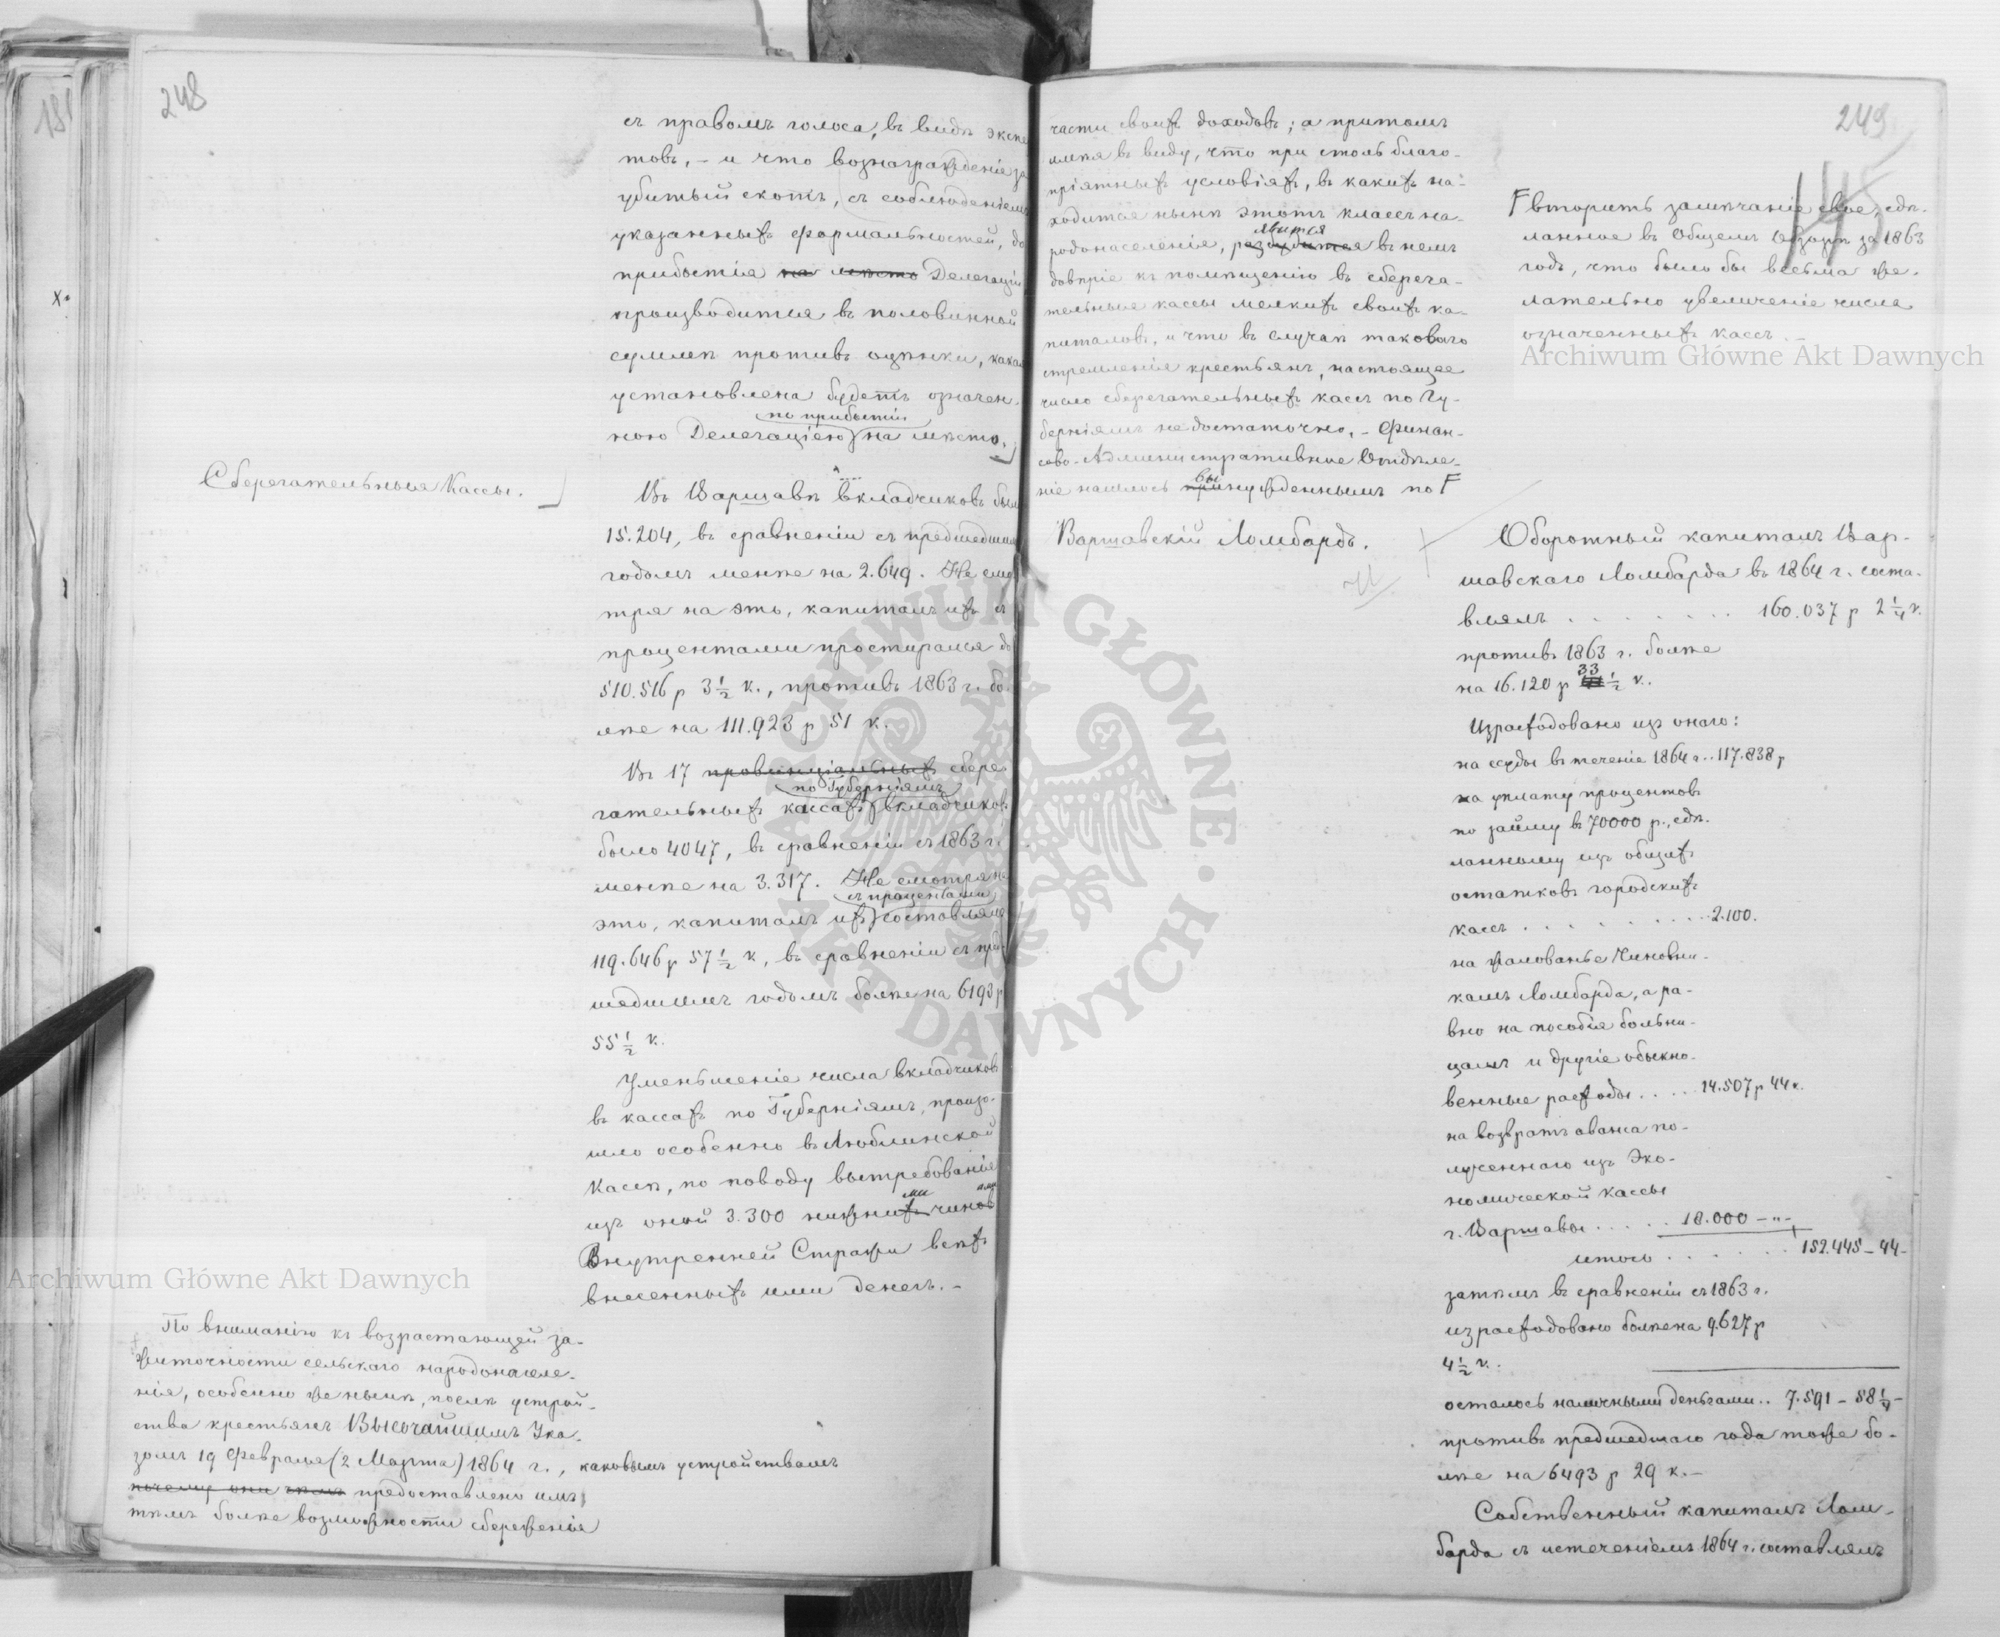 248
съ правомъ голоса, въ видѣ экспе
товъ, – и что вознагражденіе за
убитый скотъ, съ соблюденіемъ
указанныхъ формальностей, до
прибытія на мѣсто Делегаціи
производится въ половинной
суммѣ противъ оцѣнки, какая
установлена будетъ означен-
по прибытіи
ною Делегаціею на мѣсто.
Сберегательныя Кассы.
Въ Варшавѣ вкладчиковъ было
15.204, въ сравненіи съ предшедшимъ
годомъ менѣе на 2.649. Не смо
тря на это, капиталъ ихъ съ
процентами простирался до
510.516 р 3 1/2 к., противъ 1863 г. бо-
лѣе на 111.923 р 51 к.
Въ 17 провинціальныхъ сбере-
по Губерніямъ
гательныхъ кассахъ вкладчиковъ
было 4047, въ сравненіи съ 1863 г.
менѣе на 3.317. Не смотря на
съ процентами
это, капиталъ ихъ составлялъ
119.646 р 57 1/2 к, въ сравненіи съ пред-
шедшимъ годомъ болѣе на 6193 р
55 1/2 к.
Уменьшеніе числа вкладчиковъ
въ кассахъ по Губерніямъ, произо-
шло особенно въ Люблинской
Кассѣ, по поводу вытребованія
ми ами
изъ оной 3.300 нижнихъ чиновъ
Внутренней Стражи всѣхъ
внесенныхъ ими денегъ. –
По вниманію къ возрастающей за-
житочности сельскаго народонаселе-
нія, особенно же нынѣ, послѣ устрой-
ства крестьянъ Высочайшимъ Ука-
зомъ 19 Февраля (2 Марта) 1864 г., каковымъ устройствомъ
почему они предоставлено имъ
тѣмъ болѣе возможности сбереженія
249
145
части своихъ доходовъ; а притомъ
имѣя въ виду, что при столь благо-
пріятныхъ условіяхъ, въ какихъ на-
ходится нынѣ этотъ классъ на-
родонаселенія, разовьется въ немъ
довѣріе къ помѣщенію въ сберега-
тельныя кассы мелкихъ своихъ ка-
питаловъ, и что въ случаѣ таковаго
стремленія крестьянъ, настоящее
число сберегательныхъ кассъ по Гу-
берніямъ недостаточно, – Финан-
сово-Административное Отдѣле-
вы
ніе нашлось принужденнымъ по F
F вторить замѣчаніе свое, сдѣ-
ланное въ Общемъ Обзорѣ за 1863
годъ, что было бы весьма же-
лательно увеличеніе числа
означенныхъ кассъ. –
Варшавскій Ломбардъ.
Оборотный капиталъ Вар-
шавскаго Ломбарда въ 1864 г. соста-
влялъ . . . . . . . 160.037 р 2 1/4 к.
противъ 1863 г. болѣе
33
на 16.120 р 1/2 к.
Израсходовано изъ онаго:
на ссуды въ теченіе 1864 г. . 117.838 р
на уплату процентовъ
по займу въ 70000 р., сдѣ-
ланному изъ общихъ
остатковъ городскихъ
кассъ . . . . . . . . . 2.100.
на жалованье Чиновни-
камъ Ломбарда, а ра-
вно на пособія больни-
цамъ и другіе обыкно-
венные расходы . . . . . 14.507 р 44 к.
на возвратъ аванса по-
лученнаго изъ Эко-
номической кассы
г. Варшавы . . . . . 18.000 – „ –
итого . . . . . . . 152.445 – 44 –
затѣмъ въ сравненіи съ 1863 г.
израсходовано болѣе на 9.627 р
4 1/2 к.
осталось наличными деньгами . . 7.591 – 58 1/4 –
противъ предшедшаго года тоже бо-
лѣе на 6493 р 29 к. –
Собственный капиталъ Лом-
барда съ истеченіемъ 1864 г. составлялъ
Archiwum Główne Akt Dawnych
Archiwum Główne Akt Dawnych
ARCHIWUM GŁÓWNE AKT DAWNYCH